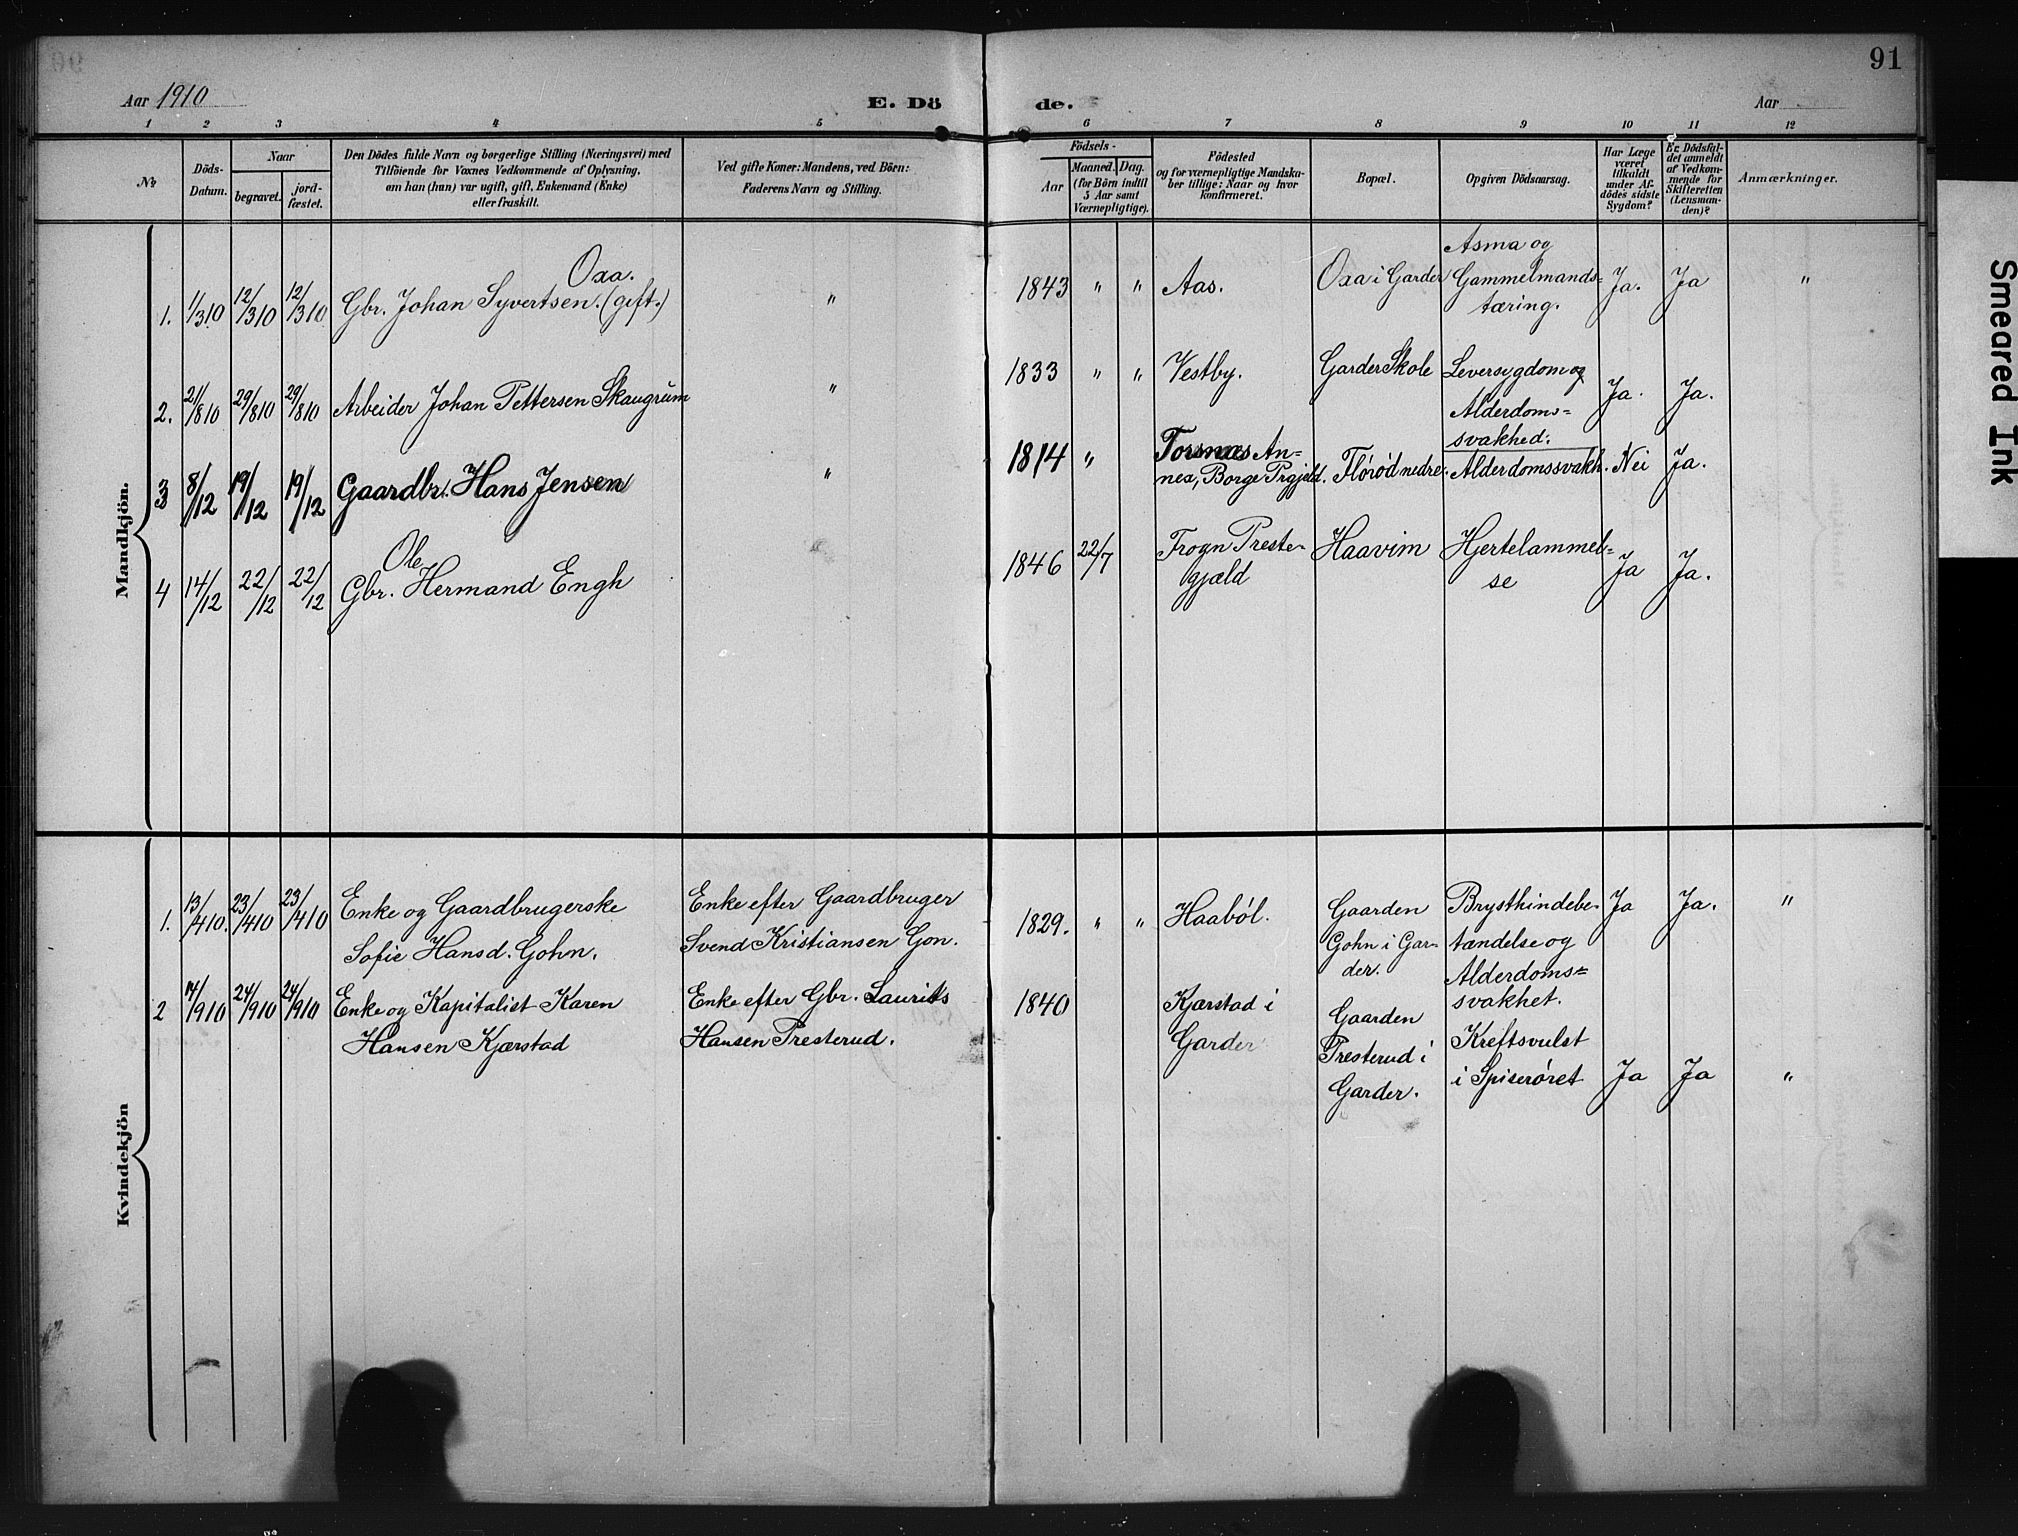 91
Aar 1910
E. Dö de.
Aar
1 2 3 4 5 6 7 8 9 10 11 12
No.
Döds-
Datum.
Naar
begravet.
jord-
fæstet.
Den Dödes fulde Navn og borgerlige Stilling (Næringsvei) med
Tilföiende for Voxnes Vedkommende af Oplysning,
om han (hun) var ugift, gift, Enkemand (Enke)
eller fraskilt.
Ved gifte Koner: Mandens, ved Börn:
Faderens Navn og Stilling.
Födsels-
Aar
Maaned. Dag.
(for Börn indtil
5 Aar samt
Værnepligtige).
Födested
og for værnepligtige Mandska-
ber tillige: Naar og hvor
konfirmeret.
Bopæl.
Opgiven Dödsaarsag.
Har Læge
været
tilkaldt
under Af-
dödes sidste
Sygdom?
Er Dödsfal-
det anmeldt
af Vedkom-
mende for
Skifteretten
(Lensman-
den)?
Anmærkninger.
Mandkjön.
1. 1/3 10 12/3 10 12/3 10
Oxa.
Gbr. Johan Syvertsen. (gift.)
"
1843 " " Aas. Oxa i Garder
Asma og
Gammelmands-
tæring.
Ja. Ja "
2. 21/8 10 29/8 10 29/8 10 Arbeider Johan Pettersen Skaugrum "
1833 " " Vestby. Garder Skole
Leversygdom og
Alderdoms-
svakhed.
Ja. Ja.
3 8/12 19/12 19/12 Gaardbr. Hans Jensen "
1814 "
Torsnæs An-
nex, Borge Prgjeld.
Flöröd nedre. Alderdomssvakh. Nei Ja.
4 14/12 22/12 22/12
Ole
Gbr. Hermand Engh
1846 22/7
Frogn Preste-
gjæld
Haavim
Hjertelammel-
se
Ja Ja.
Kvindekjön
1. 13/4 10. 23/4 10 23/4 10
Enke og Gaardbrugerske
Sofie Hansd. Gohn.
Enke efter Gaardbruger
Svend Kristiansen Gon.
1829. " " Haaböl.
Gaarden
Gohn i Gar-
der.
Brysthindebe-
tændelse og
Alderdoms-
svakhet.
Ja Ja. "
2 14/9 10 24/9 10 24/9 10
Enke og Kapitalist Karen
Hansen Kjærstad
Enke efter Gbr. Laurits
Hansen Presterud.
1840
Kjærstad i
Garder
Gaarden
Presterud i
Garder.
Kreftsvulst
i Spiserøret
Ja Ja "
Smeared Ink